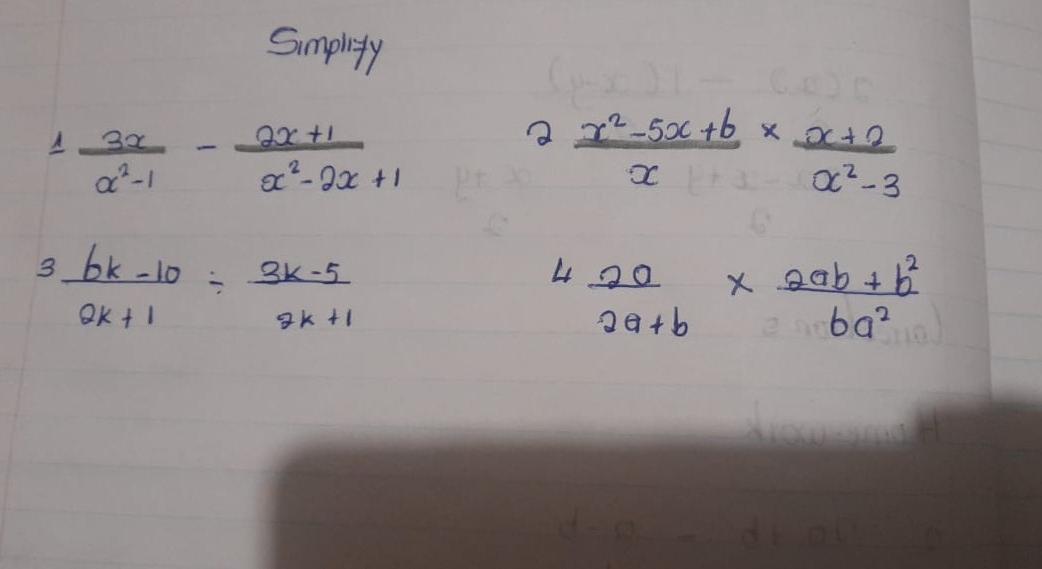 Simplify
1 3x/x²-1 - 2x+1/x²-2x+1
2 x²-5x+6/x × x+2/x²-3
3 6k-10/2k+1 ÷ 3k-5/2k+1
4 2a/2a+b × 2ab+b²/6a²